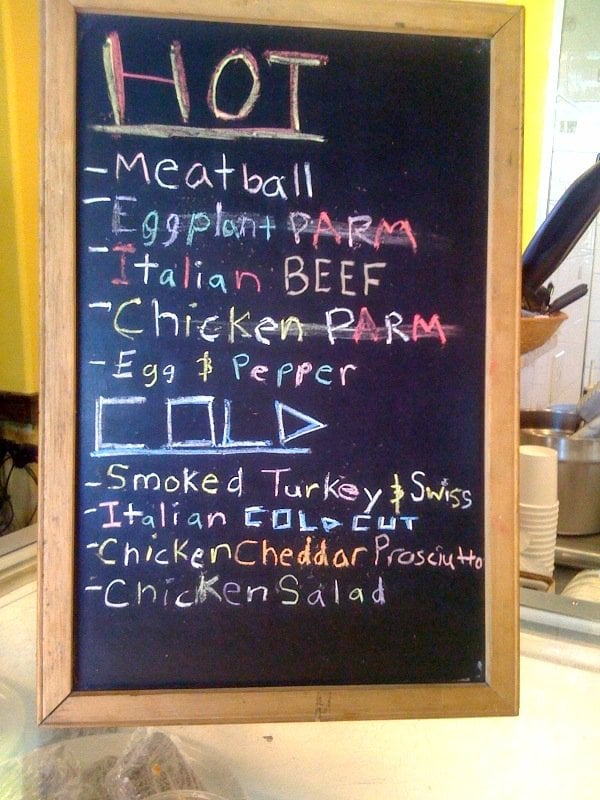 HOT
- Meatball
- Eggplant PARM
- Italian BEEF
- Chicken PARM
- Egg & Pepper
COLD
- Smoked Turkey & Swiss
- Italian COLD CUT
- Chicken Cheddar Prosciutto
- Chicken Salad